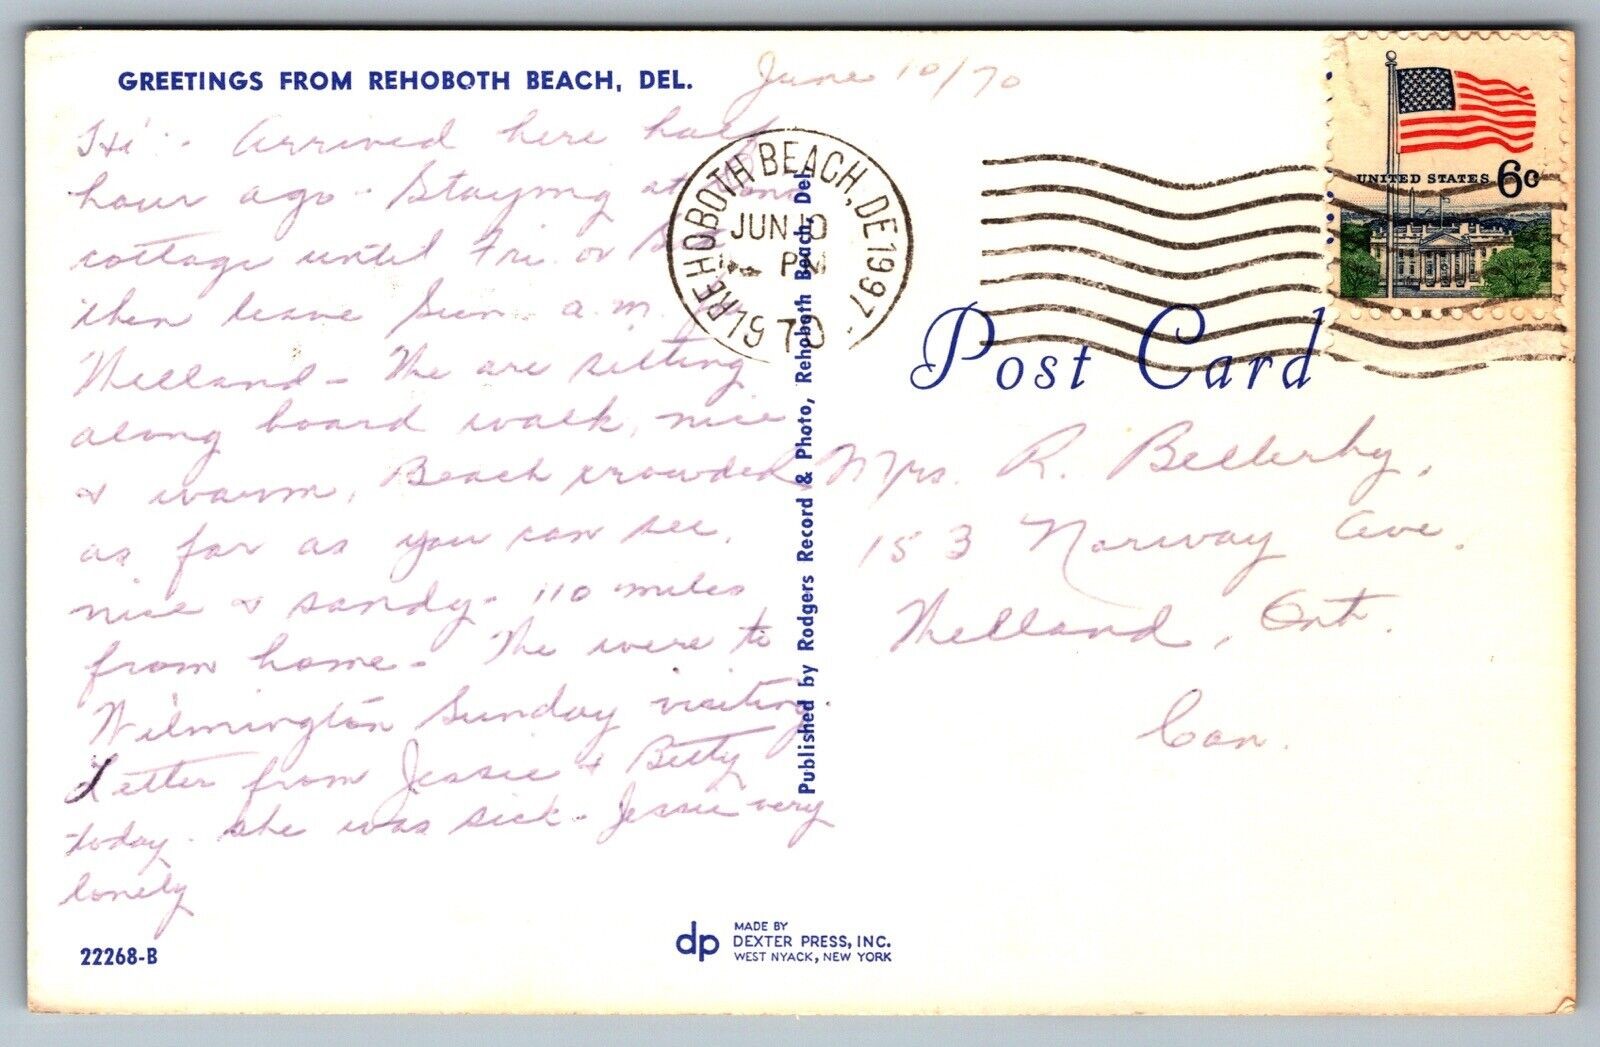 GREETINGS FROM REHOBOTH BEACH, DEL.
June 10/70
Hi - Arrived here half
hour ago - Staying at
cottage until Fri. or
then leave Sun. a.m.
Welland - We are sitting
along board walk, nice
& warm, Beach crowded
as far as you can see,
nice & sandy - 110 miles
from home - We were to
Wilmington Sunday visiting.
Letter from Jessie & Betty
today - She was sick - Jessie very
lonely
22268-B
REHOBOTH BEACH, DE 19971
JUN 10
PM
1970
Published by Rodgers Record & Photo, Rehoboth Beach, Del.
UNITED STATES 6c
Post Card
Mrs. R. Bellerby,
153 Norway Ave.
Welland, Ont.
Can.
dp
MADE BY
DEXTER PRESS, INC.
WEST NYACK, NEW YORK